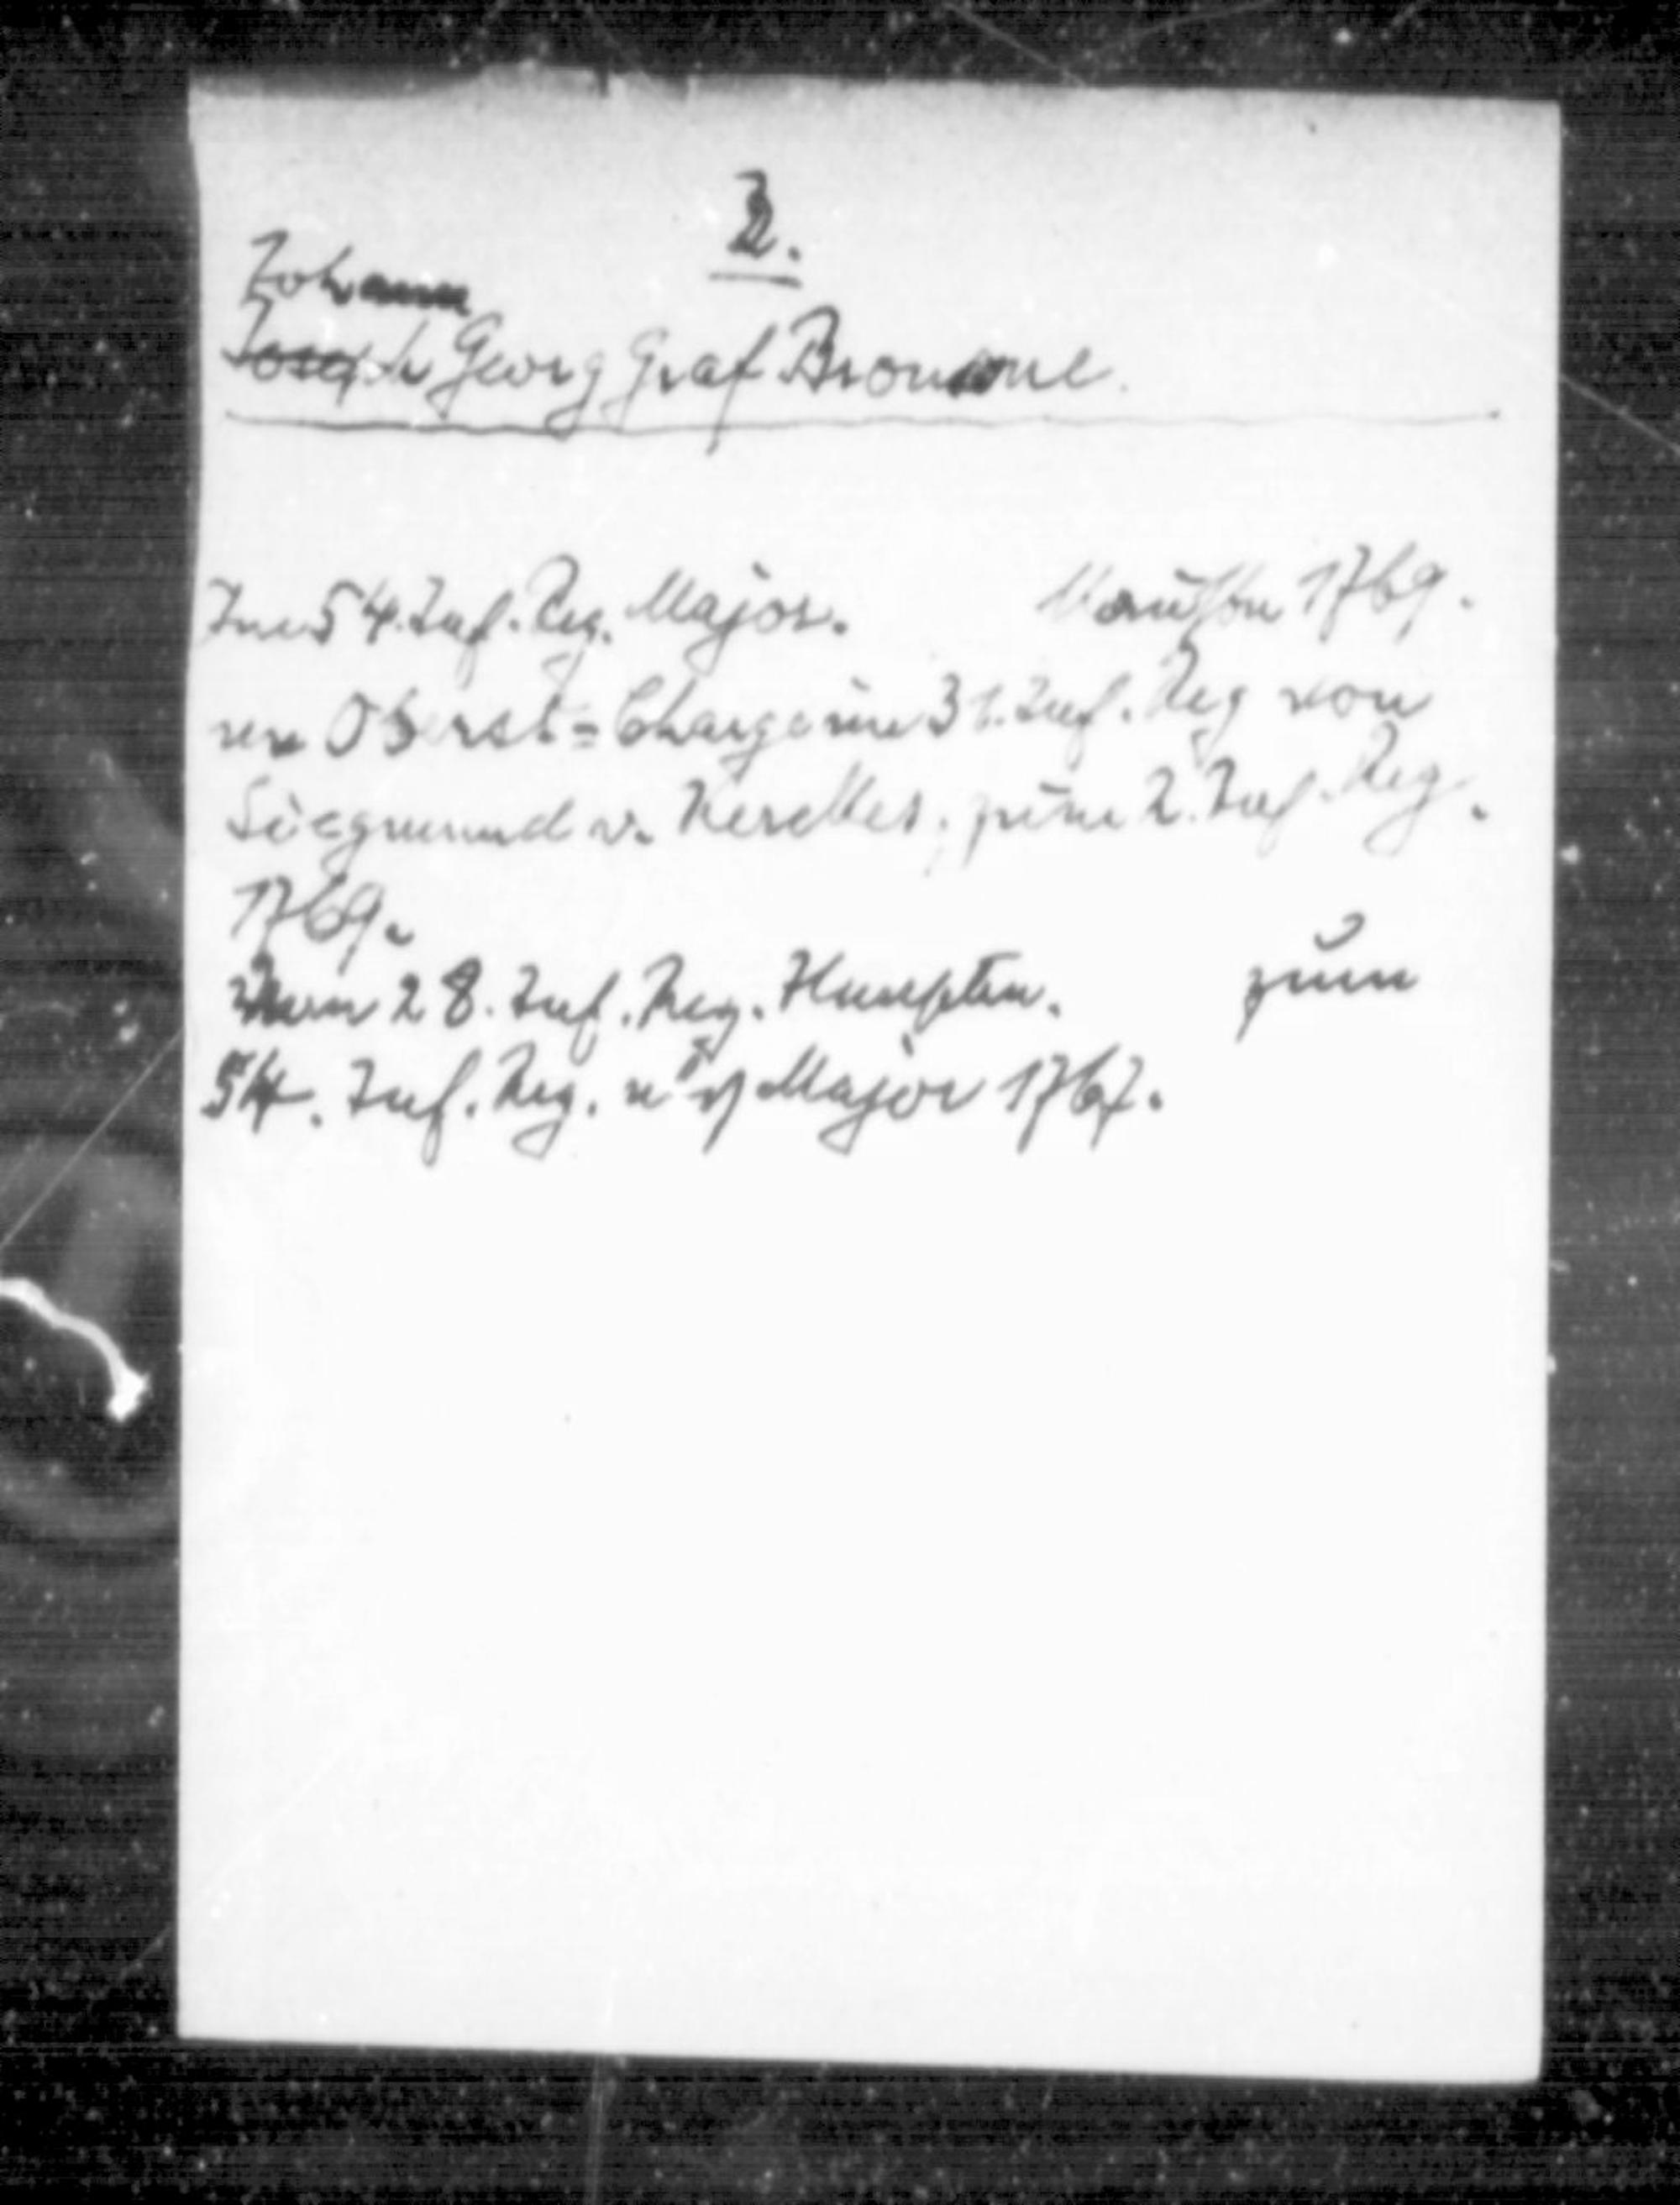 2.
Johann
Joseph Georg Graf Browne.
Im 54. Inf. Reg. Major. kaufte 1769.
die Oberst=Charge im 31. Inf. Reg von
Siegmund v. ; zum 2. Inf. Reg.
1769.
Vom 28. Inf. Reg. Hauptm. zum
54. Inf. Reg. Major 1767.